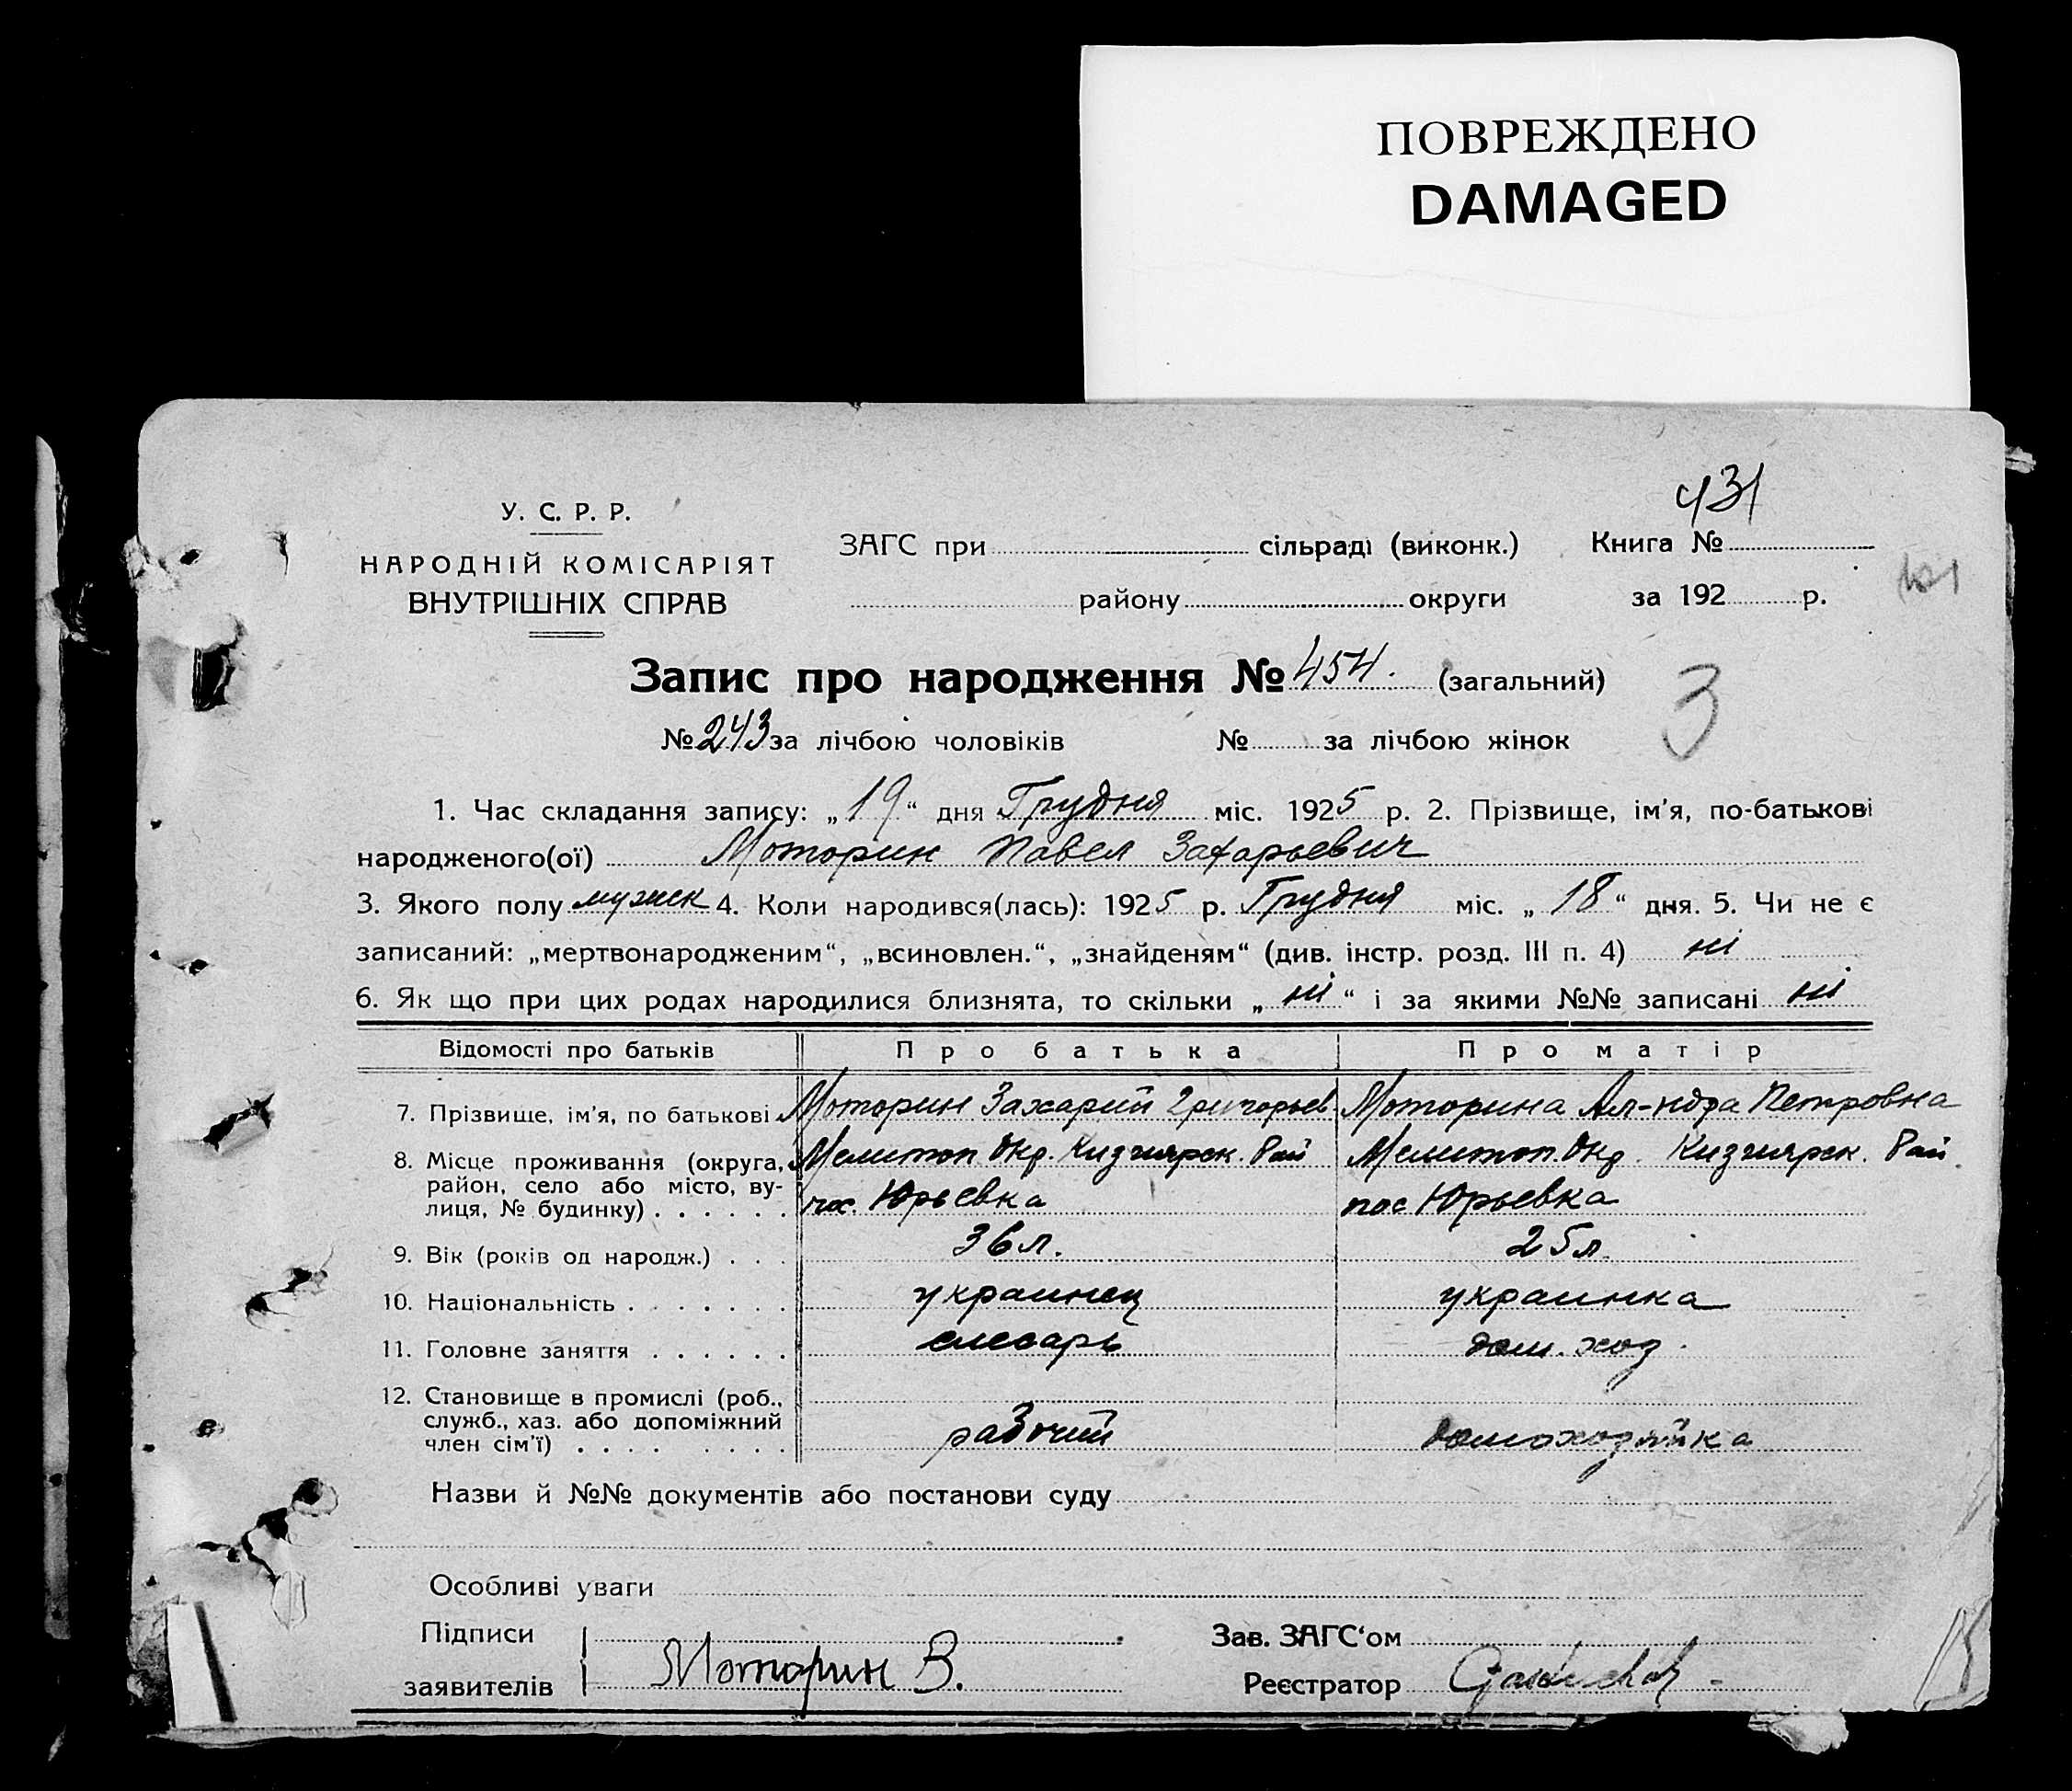 ПОВРЕЖДЕНО
DAMAGED
431
У. С. Р. Р.
НАРОДНІЙ КОМІСАРІЯТ
ВНУТРІШНІХ СПРАВ
ЗАГС при сільраді (виконк.) Книга №
району округи за 192 р.
Запис про народження № 454. (загальний)
3
№ 243 за лічбою чоловіків № за лічбою жінок
1. Час складання запису: „19“ дня Грудня міс. 1925 р. 2. Прізвище, ім'я, по-батькові
народженого(ої) Моторин Павел Захарьевич
3. Якого полу мужск 4. Коли народився(лась): 1925 р. Грудня міс. „18“ дня. 5. Чи не є
записаний: „мертвонародженим“, „всиновлен.“, „знайденям“ (див. інстр. розд. III п. 4) ні
6. Як що при цих родах народилися близнята, то скільки „ні“ і за якими №№ записані ні
Відомості про батьків Про батька Про матір
7. Прізвище, ім'я, по батькові Моторин Захарий Григорьев Моторина Ал-ндра Петровна
8. Місце проживання (округа, район, село або місто, вулиця, № будинку) . . . . . .
Мелитоп Окр. Кизиярск. Рай
пос. Юрьевка
Мелитоп. Окр. Кизиярск. Рай.
пос Юрьевка
9. Вік (років од народж.) . . . 36 л. 25 л.
10. Національність . . . . . . . украинец украинка
11. Головне заняття . . . . . . слесарь дом. хоз.
12. Становище в промислі (роб.,
служб., хаз. або допоміжний
член сім'ї) . . . . . . . . . рабочий домохозяйка
Назви й №№ документів або постанови суду
Особливі уваги
Підписи
заявителів Моторин З.
Зав. ЗАГС‘ом
Реєстратор